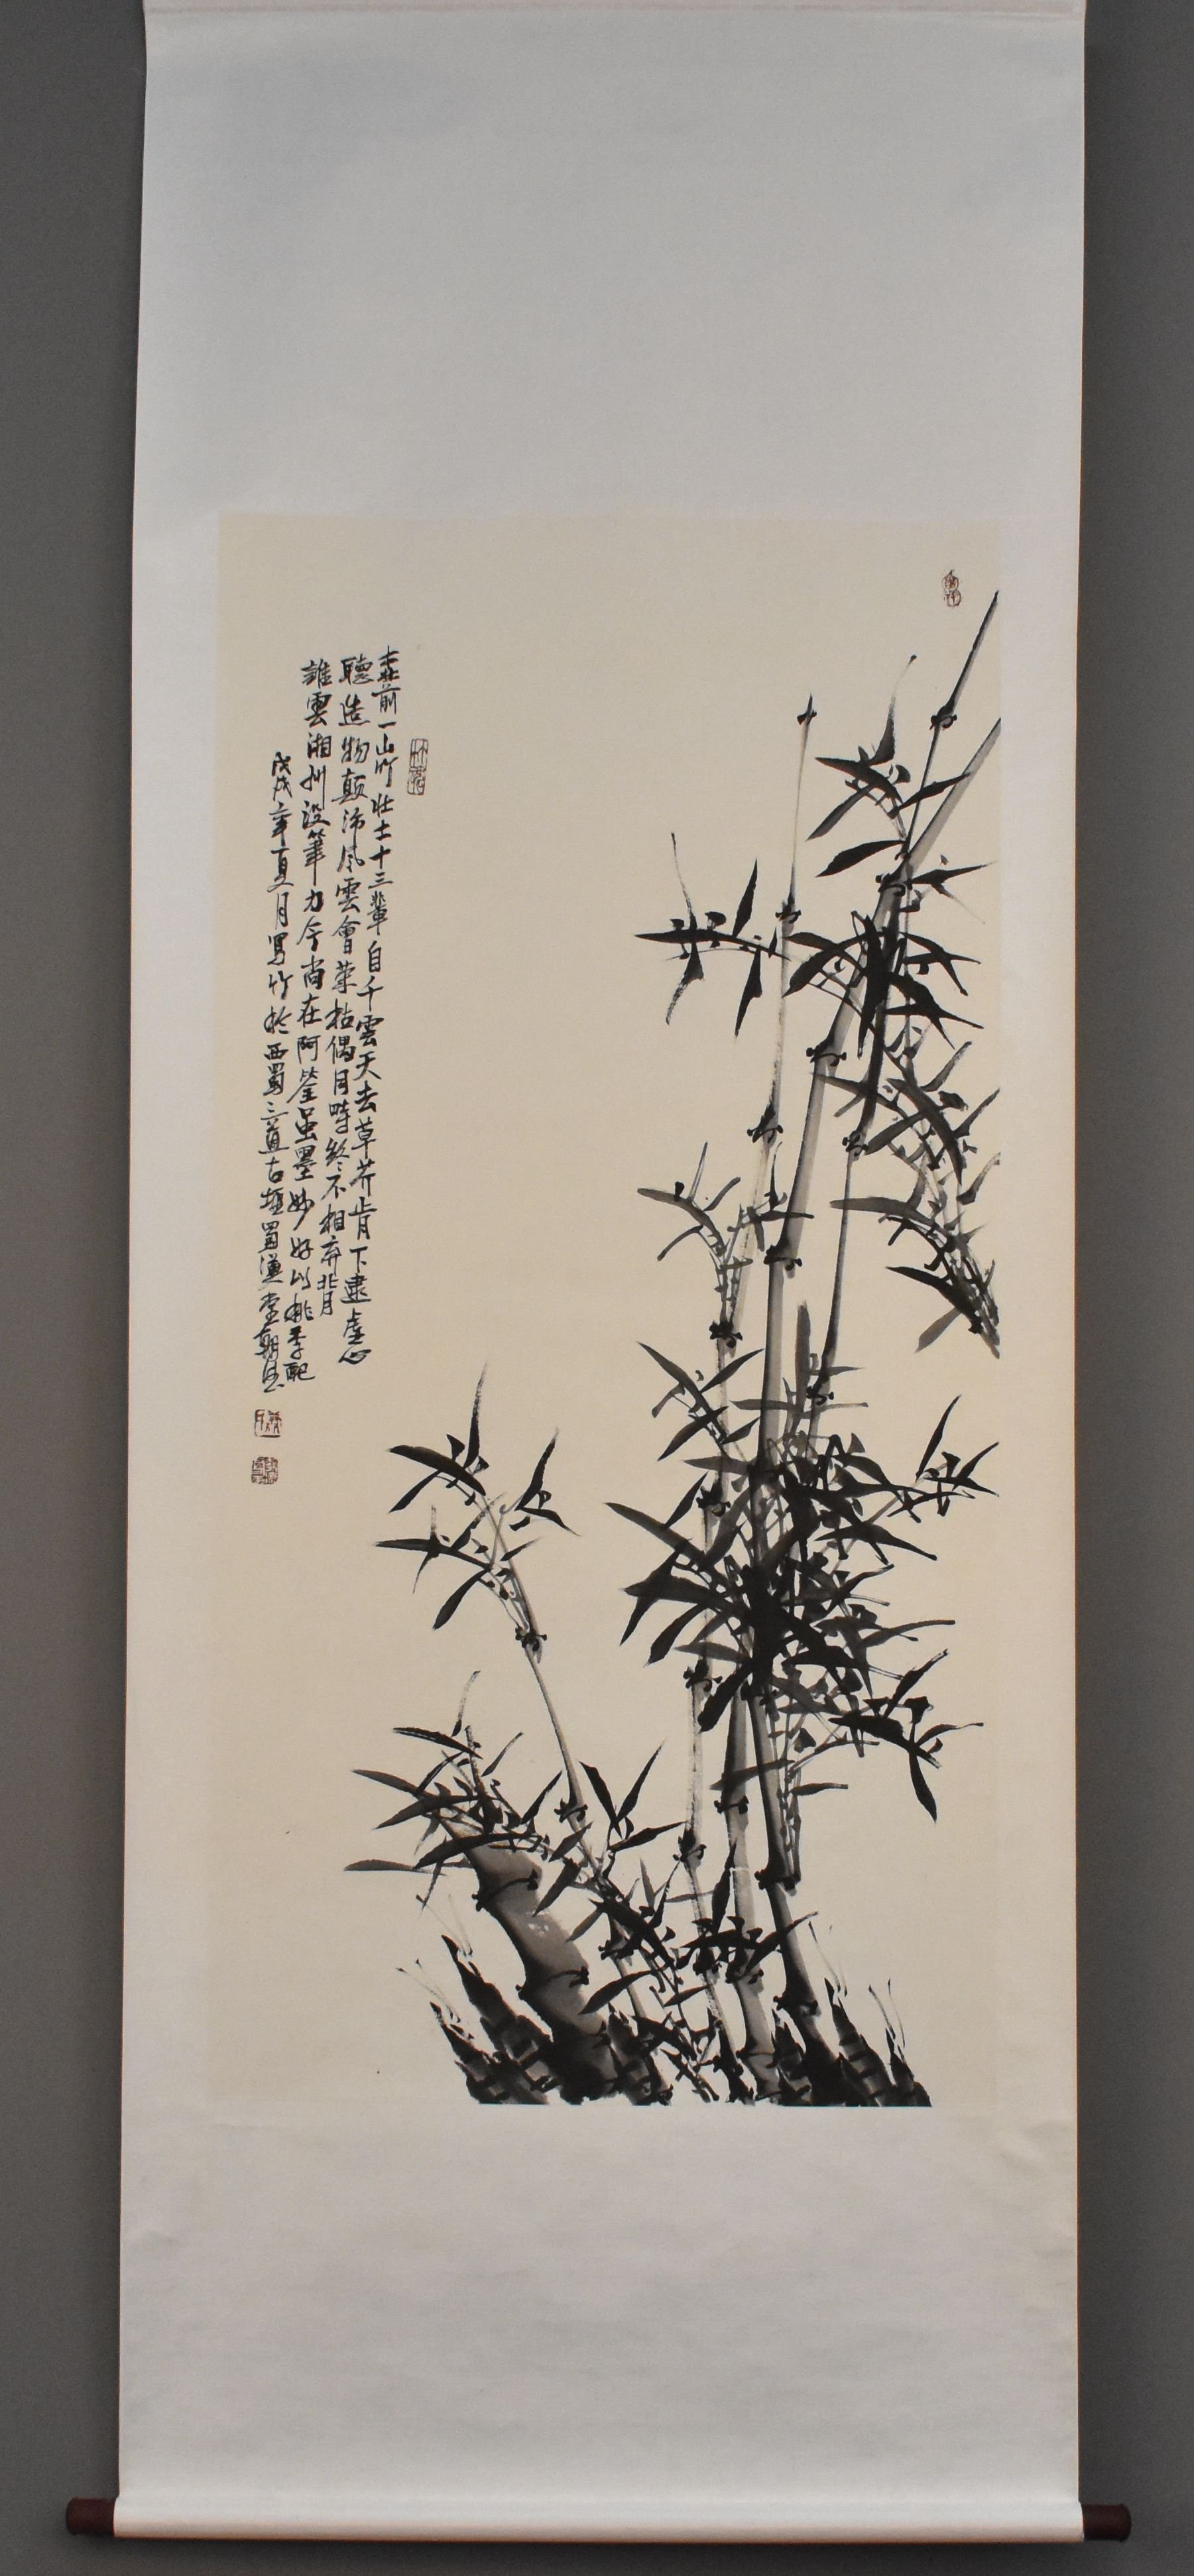 前一山竹壮士十三輩自千雲天去草芥肯下逮虚心
聽造物颠沛風雲會荣枯偶同時終不相弃背
誰雲湘州没筆力今尚在阿筌虽墨妙好以桃李配
戊戌年夏月寫竹於西蜀三道古堰蜀漢堂朝